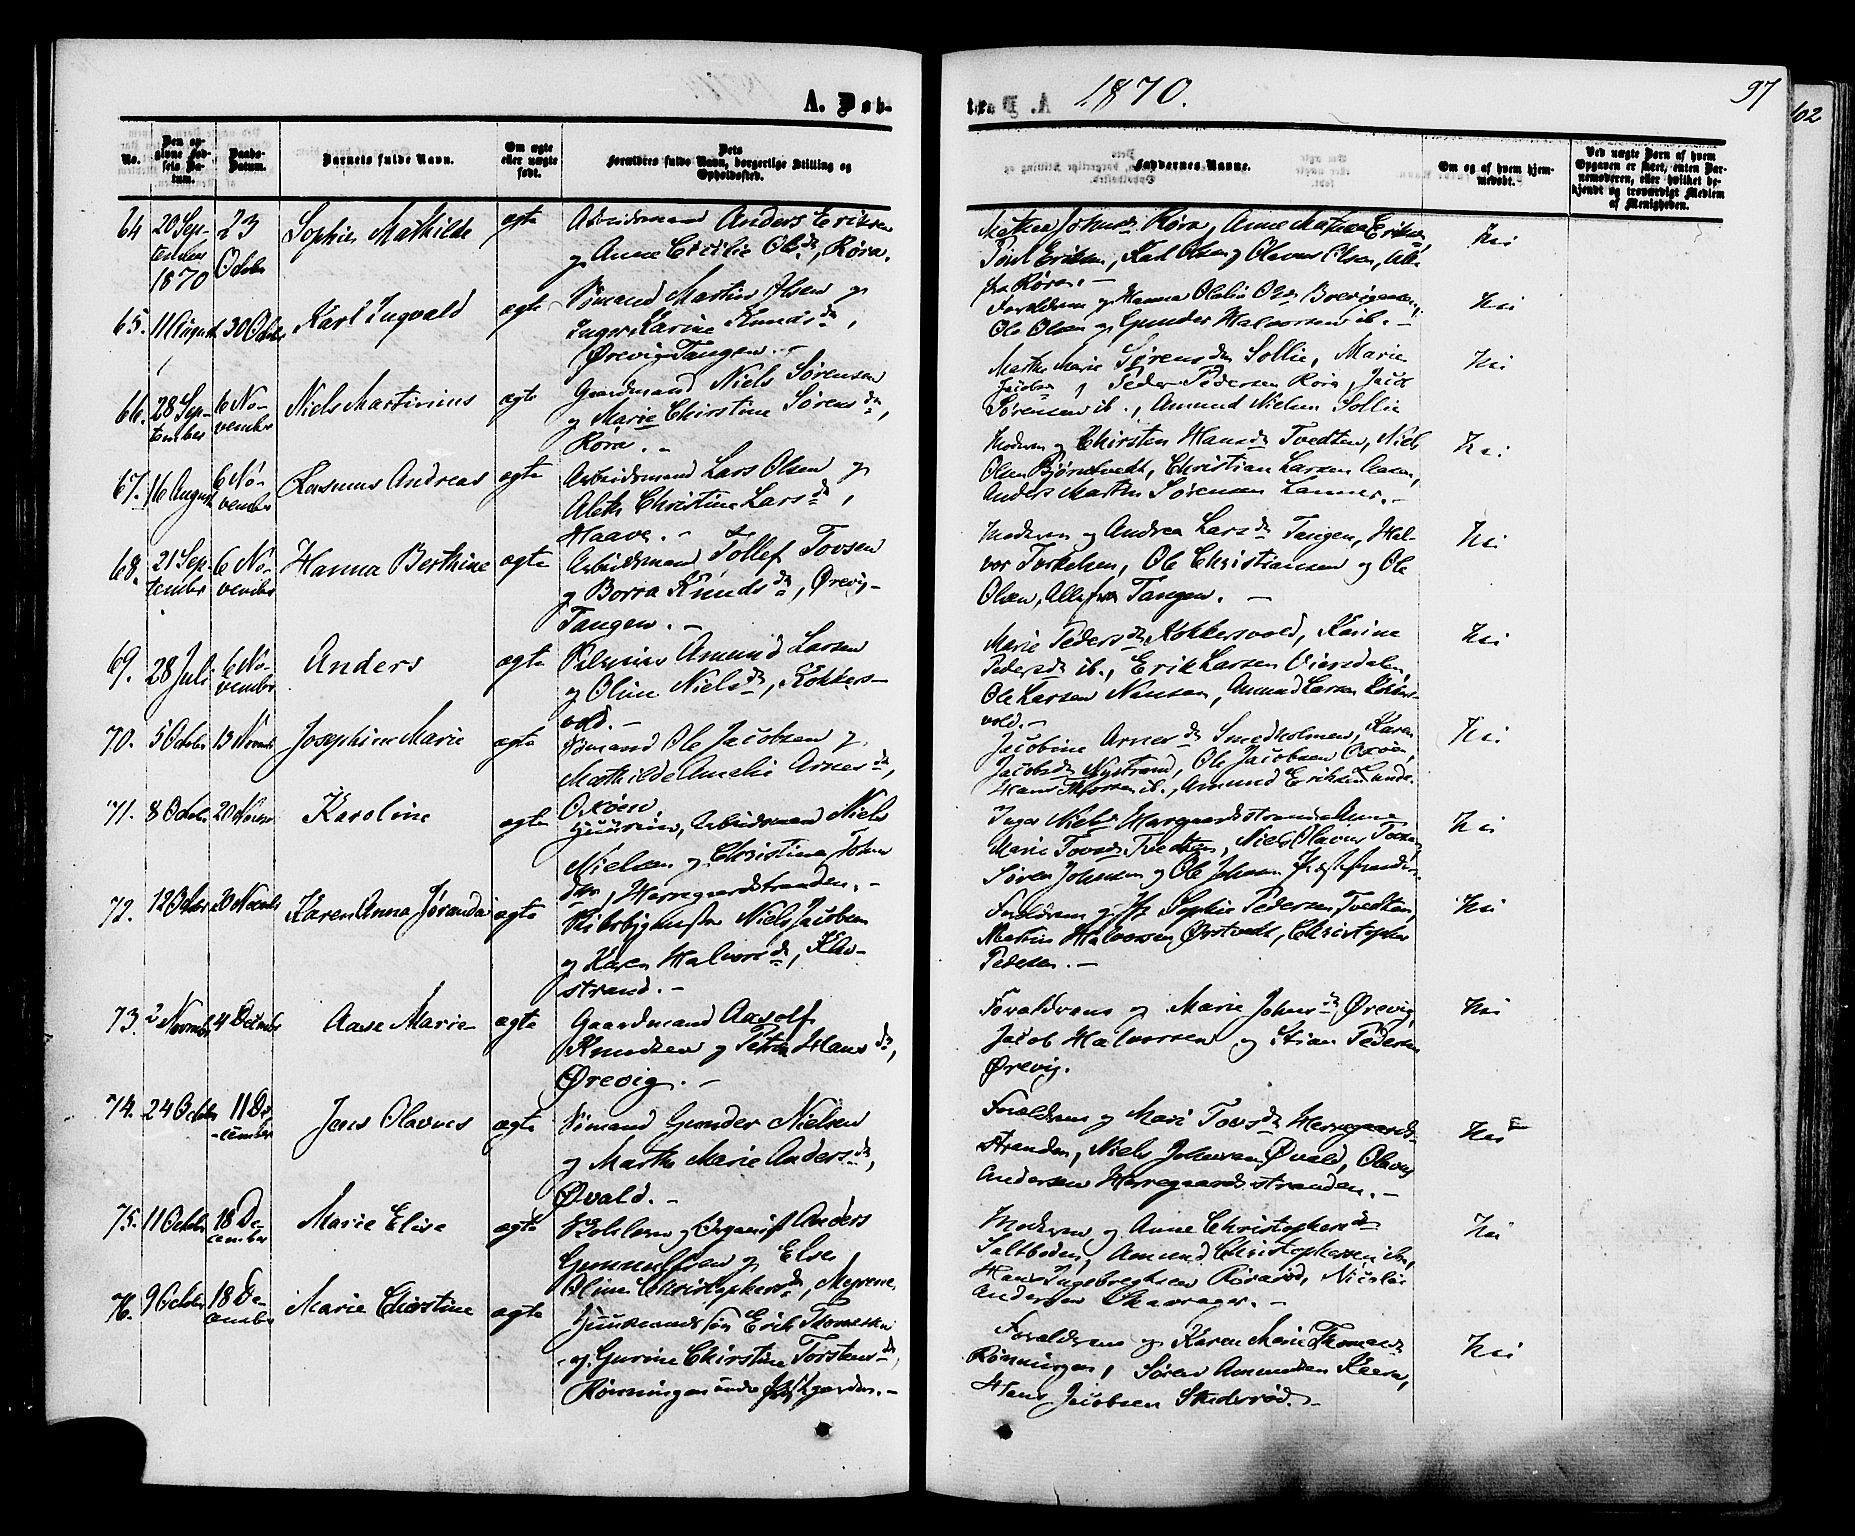 A. Døb-
1870.
97
102
No.
Den opgivne Fødsels Datum.
Daabs-Datum.
Barnets fulde Navn.
Om ægte eller uægte født.
Dets Forældres fulde Navn, borgerlige Stilling og Opholdssted.
Faddernes Navne.
Om og af hvem hjemmedøbt.
Ved uægte Børn af hvem Opgaven er skeet, enten Barnemoderen, eller hvilket bekjendt og troværdigt Medlem af Menigheden.
64 20 September 1870 23 Octobr Sophie Mathilde ægte
Arbeidsmand Anders Eriksen
og Anne Cecilie Olsdr, Røra.
Røra, Anne
Eriksen, Karl Olsen og Olavus Olsen, Alle
fra Røra.-
Nei
65. 11 August 30 Octobr Karl Ingvald ægte
Sømand Martin Olsen og
Inger Karine Knudsdr,
Ørevig Tangen.-
Forældrene og Hanna
Ole Olsen og Gunder Halvorsen ib.-
Nei
66. 28 September 6 November Niels Martinius ægte
Gaardmand Niels Sørensen
og Marie Chirstine Sørensdr,
Røra.-
Marthe Marie Sørensdr Sollie, Marie
Peder Pedersen Røra, Jacob
Sørensen ib., Amund Nielsen Sollie
Nei
67. 16 August 6 November Rasmus Andreas ægte
Arbeidsmand Lars Olsen og
Christine Larsdr,
Haave.-
Moderen og Chirsten Hansdr Tvedten, Niels
Olsen Bjørntvedt, Christian Larsen Aasen,
Anders Martin Sørensen Lanner.-
Nei
68. 21 September 6 November Hanna Berthine ægte
Arbeidsmand Tollef Tovsen
og Borra Knudsdr, Ørevig-
Tangen.-
Moderen og Andrea Larsdr Tangen, Hal-
vor Torkelsen, Ole Christiansen og Ole
Olsen, Alle fra Tangen.-
Nei
69. 28 Juli 6 November Anders ægte
Amund Larsen
og Oline Nielsdr, Kokkers-
vold.-
Marie Pedersdr Kokkersvold, Karine
Pedersdr ib., Erik Larsen Viersdalen,
Ole Larsen Nausen, Amund Larsen Kokkers-
vold.-
Nei
70. 5 Octobr 13 Novembr Josephine Marie ægte
Sømand Ole Jacobsen og
Mathilde Amalie Arnesdr,
Oxøen
Jacobine Arnesdr Smedholmen, Karen
Jacobsdr Nystrand, Ole Jacobsen Oxøen,
Hans ib., Amund Eriksen Lunde.
Nei
71. 8 Octobr 20 Novembr Karoline ægte
Arbeidsmand Niels
Nielsen og Christine Johns-
dtr, Herregaardstranden.-
Inger Nielsdr Herregaardstranden Anne
Marie Tovsdr Tvedten, Niels Olavus
Søren Johnsen og Ole Johnsen
Nei
72. 12 Octobr 20 Novembr Karen Anna Jørandia ægte
Niels Jacobsen
og Karen Halvorsdr, Klov-
strand.-
Forældrene og Sophie Pedersen Tvedten,
Mathis Halvorsen Ørstvedt, Christopher
Pedersen.-
Nei
73. 2 Novembr 4 Decembr Aase Marie ægte
Gaardmand Aasolf
Knudsen og Petra Hansdr,
Ørevig.-
Forældrene og Marie Johnsdr Ørevig,
Jacob Halvorsen og Stian Pedersen
Ørevig.
Nei
74. 24 Octobr 11 December Jens Olavus ægte
Sømand Gunder Nielsen
og Marthe Marie Andersdr,
Øvald.-
Forældrene og Mari Tovsdr Herregaards-
stranden, Niels Johnsen Øvald, Olavus
Andersen Herregaardsstranden.-
Nei
75. 11 Octobr 18 December Marie Elise ægte
og Organist Anders
Gunnulfsen og Else
Oline Christophersdr, Myrene
Moderen og Anne Christophersdr
Saltboden, Amund Christophersen ib.,
Hans Ingebregtsen Rørarød, Nicolai
Andersen Skavrager.-
Nei
76. 9 Octobr 18 December Marie Chirstine ægte
Huusmandssøn Erik Thomesen
og Gurine Chirstine Torstensdr,
Rønningen under
Forældrene og Karen Marie Thomasdr
Rønningen, Søren Amundsen
Hans Jacobsen Stuverød.-
Nei